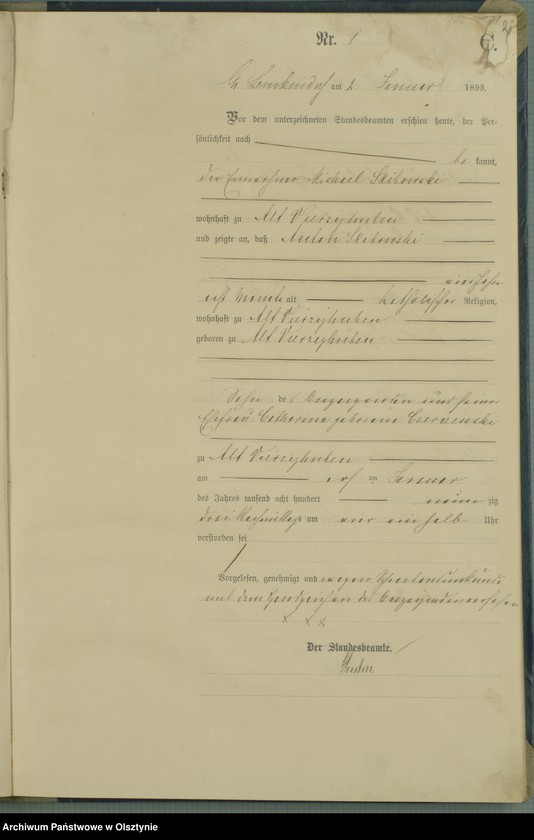 Nr. 1
C.
Gr. Lemkendorf am 2 Januar 1893.
Vor dem unterzeichneten Standesbeamten erschien heute, der Per-
sönlichkeit nach
be kannt,
der Einwohner Michael Skibowski
wohnhaft zu Alt Vierzighuben
und zeigte an, daß Anton Skibowski
ein Jahr
acht Monate alt katholischer Religion,
wohnhaft zu Alt Vierzighuben
geboren zu Alt Vierzighuben
Sohn des Anzeigenden und seiner
Ehefrau Catharina geborene
zu Alt Vierzighuben
am ersten Januar
des Jahres tausend acht hundert neun zig
drei Nachmittags um ein halb Uhr
verstorben sei
Vorgelesen, genehmigt und wegen Schreibensunkunde
mit dem Handzeichen des Anzeigenden versehen
x x x
Der Standesbeamte.
Archiwum Państwowe w Olsztynie